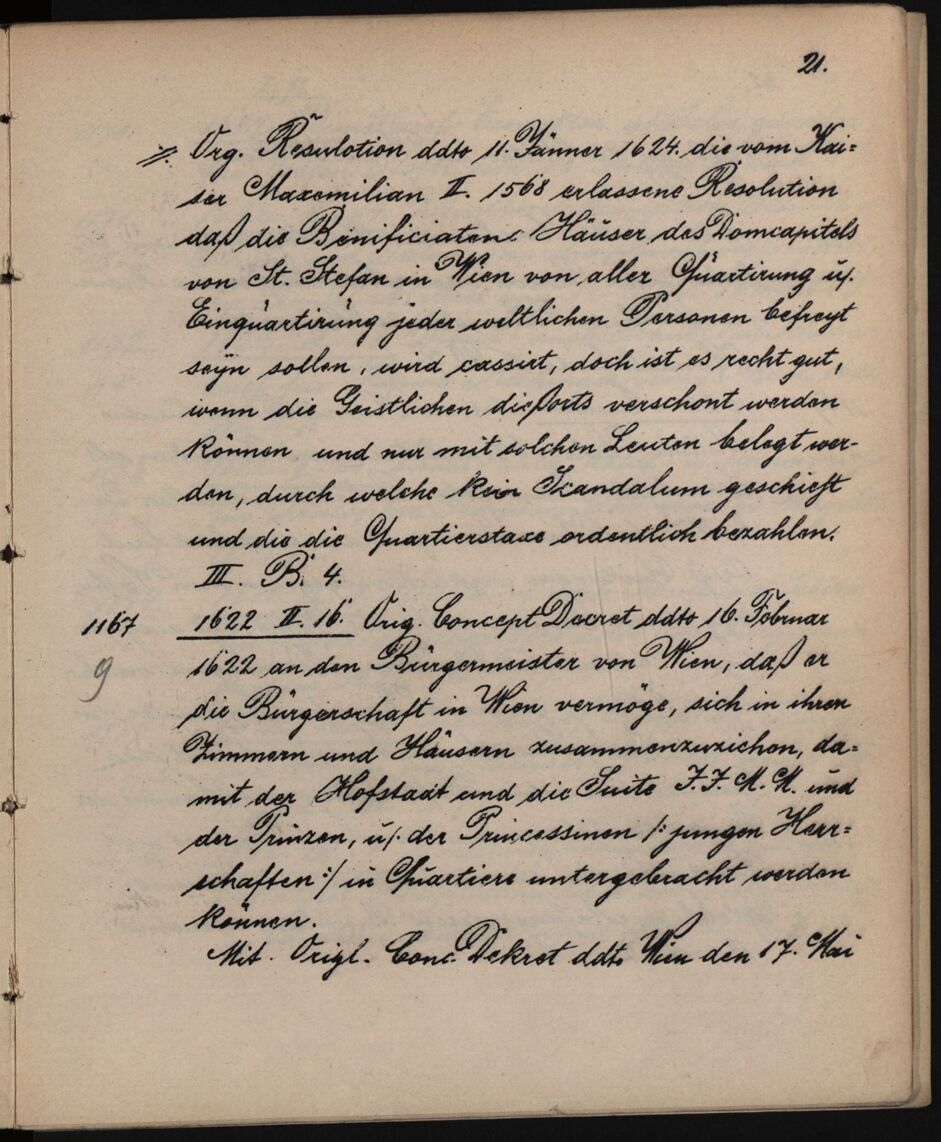 21.
//. Org. Resulotion ddto 11. Jänner 1624. die vom Kai=
ser Maxemilian II. 1568 erlassene Resolution
daß die Benificiaten Häuser des Domcapitels
von St. Stefan in Wien von aller Quartirung u/.
Einquartirung jeder weltlichen Personen befreyt
seyn sollen, wird cassirt, doch ist es recht gut,
wenn die Geistlichen dießorts verschont werden
können und nur mit solchen Leuten belegt wer-
den, durch welche kein Scandalum geschieft
und die die Quartierstaxe ordentlich bezahlen.
III. B. 4.
1167 1622 II. 16. Orig. Concept Decret ddto 16. Februar
9 1622 an den Bürgermeister von Wien, daß er
die Bürgerschaft in Wien vermöge, sich in ihren
Zimmern und Häusern zusammenzuziehen, da=
mit der Hofstadt und die Suite J.J. M.M. und
der Prinzen, u/. der Princessinen /: jungen Herr=
schaften :/ in Quartiere untergebracht werden
können.
Mit. Origl. Conc. Dekret ddto Wien den 17. Mai